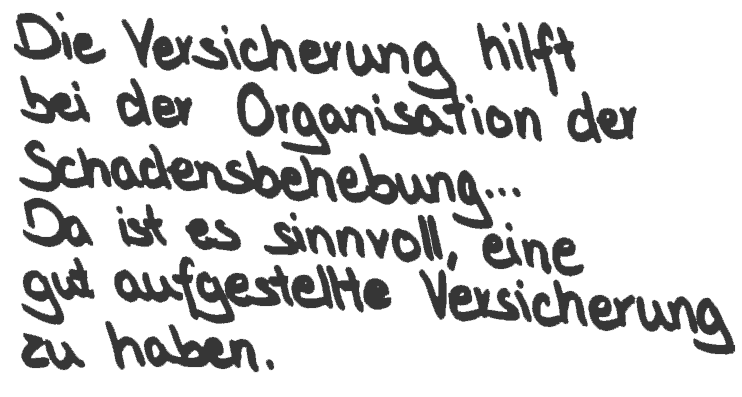 Die Versicherung hilft
bei der Organisation der
Schadensbehebung...
Da ist es sinnvoll, eine
gut aufgestellte Versicherung
zu haben.